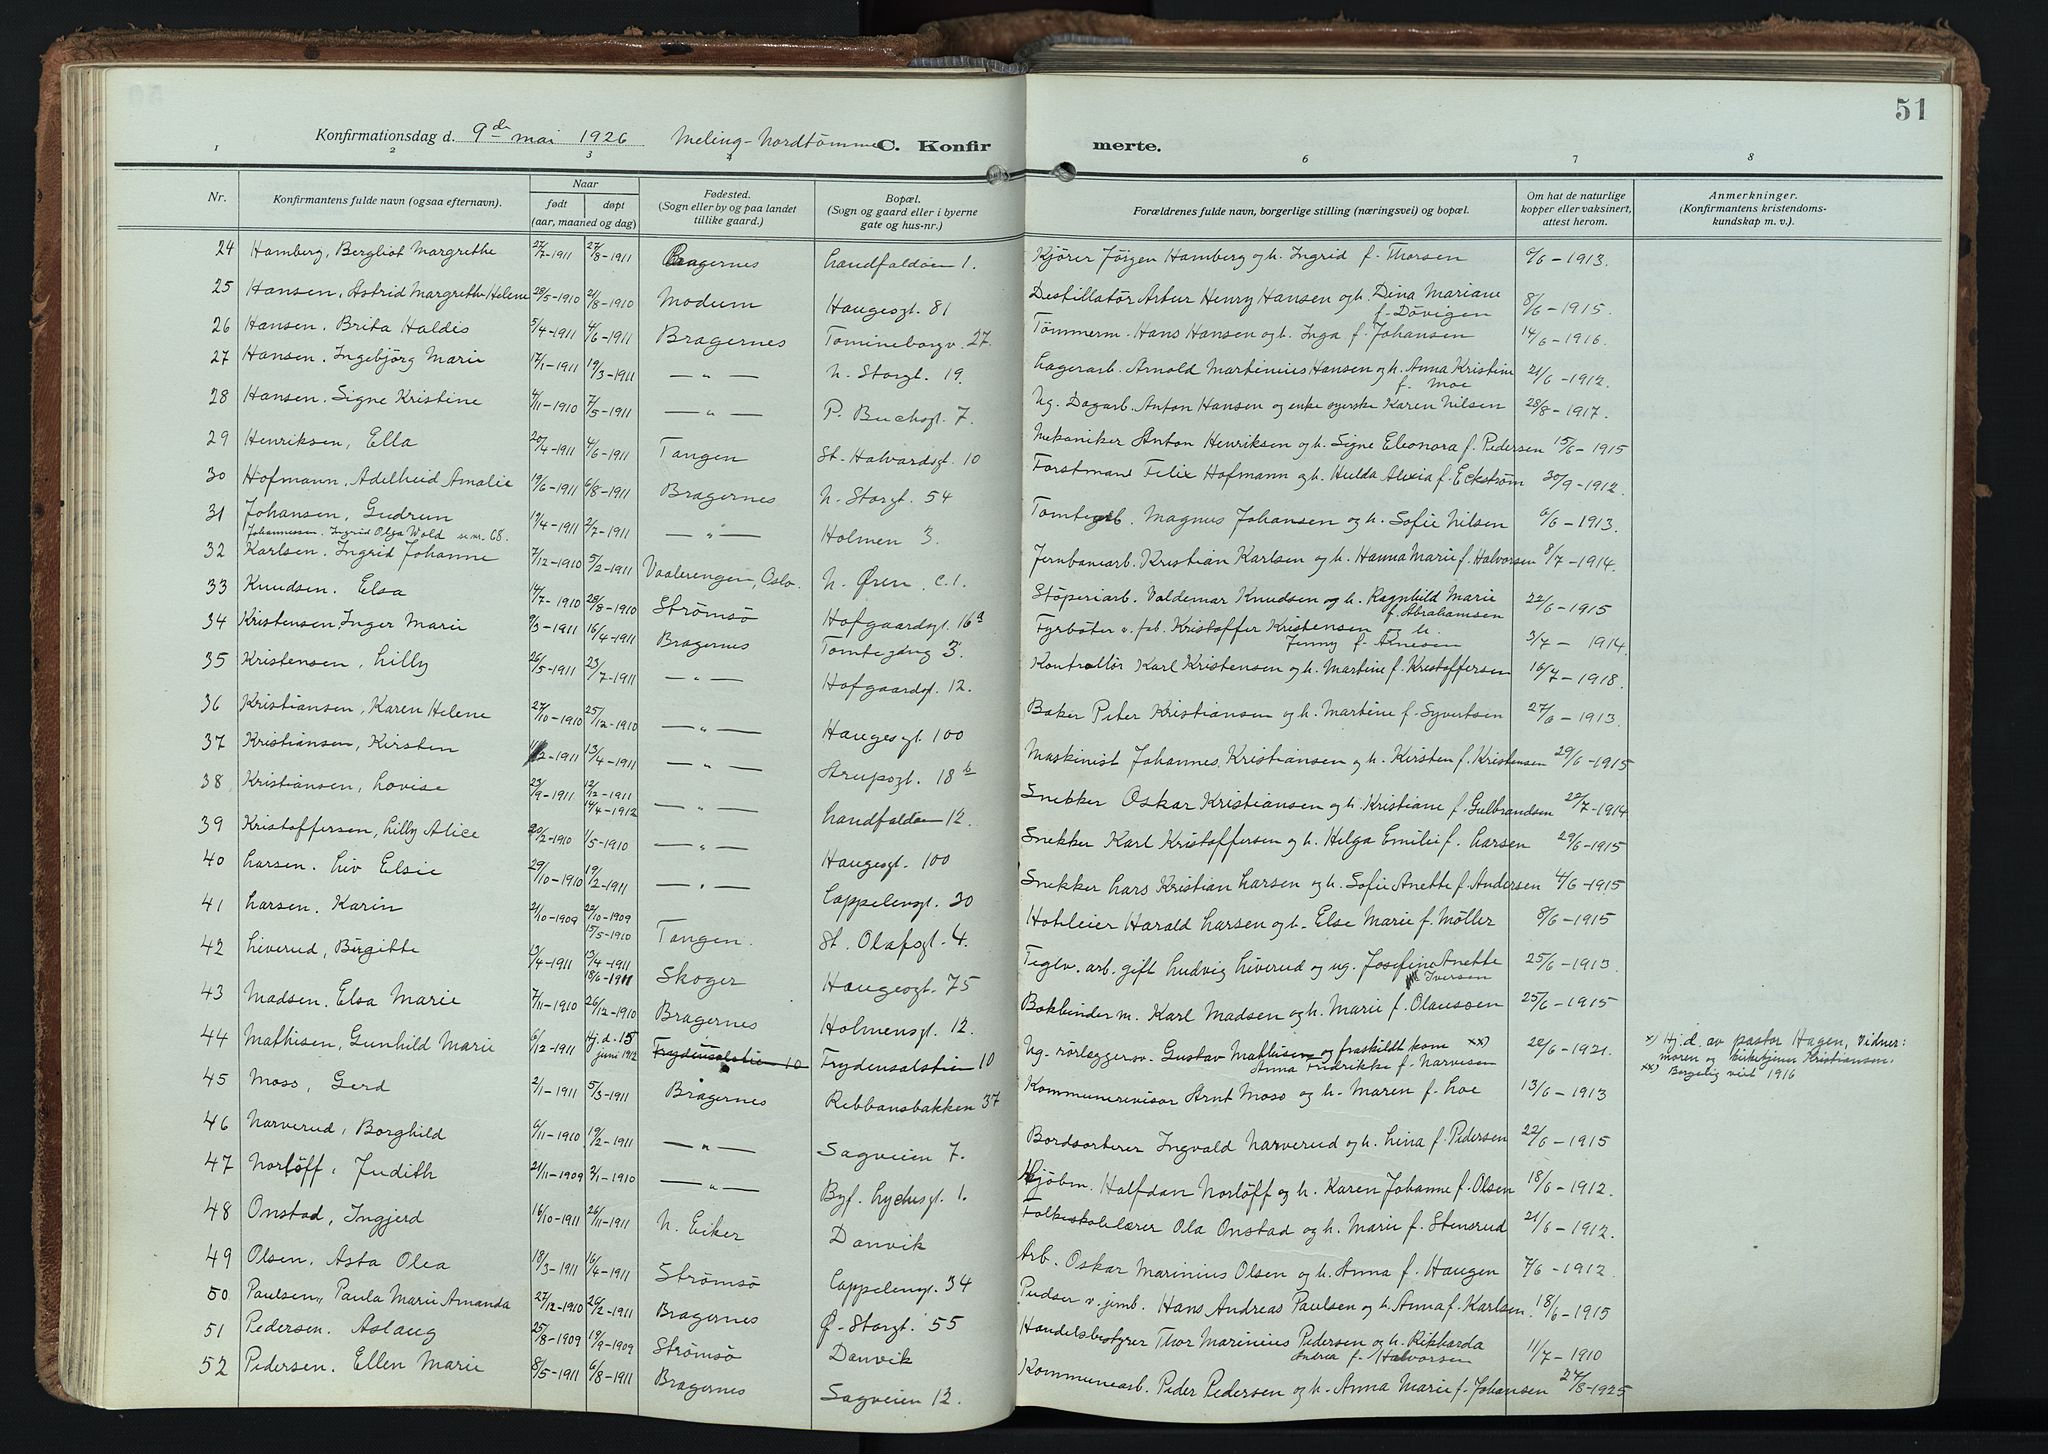 51
Konfirmationsdag d. 9de mai 1926 Meling-Nordtømme C. Konfirmerte.
1 2 3 4 6 7 8
Nr. Konfirmantens fulde navn (ogsaa efternavn). Naar født døpt (aar, maaned og dag) Fødested. (Sogn eller by og paa landet tillike gaard.) Bopæl. (Sogn og gaard eller i byerne gate og hus-nr.) Forældrenes fulde navn, borgerlige stilling (næringsvei) og bopæl. Om hat de naturlige kopper eller vaksinert, attest herom. Anmerkninger. (Konfirmantens kristendoms-kundskap m. v.).
24 Hamberg, Bergliot Margrethe 27/7-1911 27/8-1911 Bragernes Landfaldøen 1. Kjører Jörgen Hamberg og h. Ingrid f. Thorsen 6/6-1913.
25 Hansen, Astrid Margrethe Helene 28/5-1910 21/8-1910 Modum Haugesgt. 81 Destillatör Artur Henry Hansen og h. Dina Mariane f. Dövigen 8/6-1915.
26 Hansen. Brita Haldis 5/4-1911 4/6-1911 Bragernes Tomineborgv. 27. Tömmerm. Hans Hansen og h. Inga f. Johansen 14/6-1916.
27 Hansen. Ingebjörg Marie 17/1-1911 19/3-1911 — " — N. Storgt. 19. Lagerarb. Arnold Martinius Hansen og h. Anna Kristine f. Moe 21/6-1912.
28 Hansen. Signe Kristine 4/11-1910 7/5-1911 — " — P. Buchsgt. 7. Ug. Dagarb. Anton Hansen og enke syerske Karen Nilsen 28/8-1917.
29 Henriksen, Ella 20/4-1911 4/6-1911 Tangen St. Halvardsgt. 10 Mekaniker Anton Henriksen og h. Signe Eleonora f. Pedersen 15/6-1915
30 Hofmann, Adelheid Amalie 19/6-1911 6/8-1911 Bragernes N. Storgt. 54 Forstmand Felix Hofmann og h. Hulda Alexia f. Eckström 30/9-1912.
31 Johansen, Gudrun 19/4-1911 2/7-1911 — " — Holmen 3. Tomtearb. Magnus Johansen og h. Sofie Nilsen 6/6-1913.
Johannessen. Ingrid Olga Wold se nr. 68.
32 Karlsen. Ingrid Johanne 7/12-1910 5/2-1911 Vaalerengen, Oslo. N. Øren c. 1. Jernbanearb. Kristian Karlsen og h. Hanna Marie f. Halvorsen 8/7-1914.
33 Knudsen. Elsa 14/7-1910 28/8-1910 Strömsö Hofgaardsgt. 16a Støperiarb. Valdemar Knudsen og h. Ragnhild Marie f. Abrahamsen 22/6-1915
34 Kristensen, Inger Marie 9/3-1911 16/4-1911 Bragernes Tomtegang 3. Fyrbøter v. fab. Kristoffer Kristensen og h. Jenny f. Arnesen 3/7-1914.
35 Kristensen, Lilly 26/5-1911 23/7-1911 — " — Hofgaardsgt. 12. Kontrollör Karl Kristensen og h. Martine f. Kristoffersen 16/7-1918.
36 Kristiansen, Karen Helene 27/10-1910 25/12-1910 — " — Haugesgt. 100 Baker Peter Kristiansen og h. Martine f. Syvertsen 27/6-1913.
37 Kristiansen, Kirsten 2-1911 13/4-1911 — " — Strupsgt. 18b Maskinist Johannes Kristiansen og h. Kirsten f. Kristensen 29/6-1915
38 Kristiansen, Lovise 23/9-1911 12/12-1911 14/4-1912 — " — Landfaldøen 12. Snekker Oskar Kristiansen og h. Kristiane f. Gulbrandsen 22/7-1914
39 Kristoffersen, Lilly Alice 20/2-1910 1/5-1910 — " — Haugesgt. 100 Snekker Karl Kristoffersen og h. Helga Emilie f. Larsen 29/6-1915
40 Larsen. Liv Elsie 29/10-1910 19/2-1911 — " — Cappelensgt. 30 Snekker Lars Kristian Larsen og h. Sofie Anette f. Andersen 4/6-1915
41 Larsen. Karin 21/10-1909 22/10-1909 15/5-1910 Tangen. St. Olafsgt. 4. Hoteleier Harald Larsen og h. Else Marie f. Möller 8/6-1915
42 Liverud, Birgitte 13/4-1911 13/4-1911 18/6-1911 Skoger Haugesgt. 75 Teglv. arb. gift Ludvig Liverud og ug. Josefine Anette Iversen 25/6-1913.
43 Madsen. Elsa Marie 7/11-1910 26/12-1910 Bragernes Holmensgt. 12. Bokbinderm. Karl Madsen og h. Marie f. Olaussen 25/6-1915
44 Mathisen, Gunhild Marie 6/12-1911 Hj.d. 15 juni 1912 Frydensalstien 10 Frydensalstien 10 Ug. rørleggersv. Gustav Mathisen og fraskildt kone xx) Anna Fredrikke f. Narvesen 22/6-1921. x) Hj.d. av pastor Hagen, Vidner: moren og kirketjener Kristiansen. xx) Borgelig viet 1916
45 Moso, Gerd 2/1-1911 5/3-1911 Bragernes Ribbansbakken 37 Kommunerevisor Arnt Moso og h. Maren f. Loe 13/6-1913
46 Narverud, Borghild 6/11-1910 19/2-1911 — " — Sagveien 7. Bordsorterer Ingvald Narverud og h. Lina f. Pedersen 22/6-1915
47 Norlöff, Judith 21/11-1909 2/1-1910 — " — Byf. Lychesgt. 1. Kjöbm. Halfdan Norlöff og h. Karen Johanne f. Olsen 18/6-1912.
48 Onstad, Ingjerd 16/10-1911 26/11-1911 N. Eiker Danvik Folkeskolelærer Ola Onstad og h. Marie f. Stensrud 21/6-1912.
49 Olsen. Asta Olea 18/3-1911 16/4-1911 Strömsö Cappelensgt. 34 Arb. Oskar Marinius Olsen og h. Anna f. Haugen 7/6-1912.
50 Paulsen, Paula Marie Amanda 27/12-1910 26/2-1911 Bragernes Ø. Storgt. 55 Pudser v. jernb. Hans Andreas Paulsen og h. Anna f. Karlsen. 18/6-1915
51 Pedersen. Aslaug 25/8-1909 19/9-1909 Strömsö Danvik Handelsbestyrer Thor Marinius Pedersen og h. Rikharda Andrea f. Halvorsen 11/7-1910
52 Pedersen. Ellen Marie 8/5-1911 6/8-1911 Bragernes Sagveien 12. Kommunearb. Peder Pedersen og h. Anna Marie f. Johansen 24/8-1925